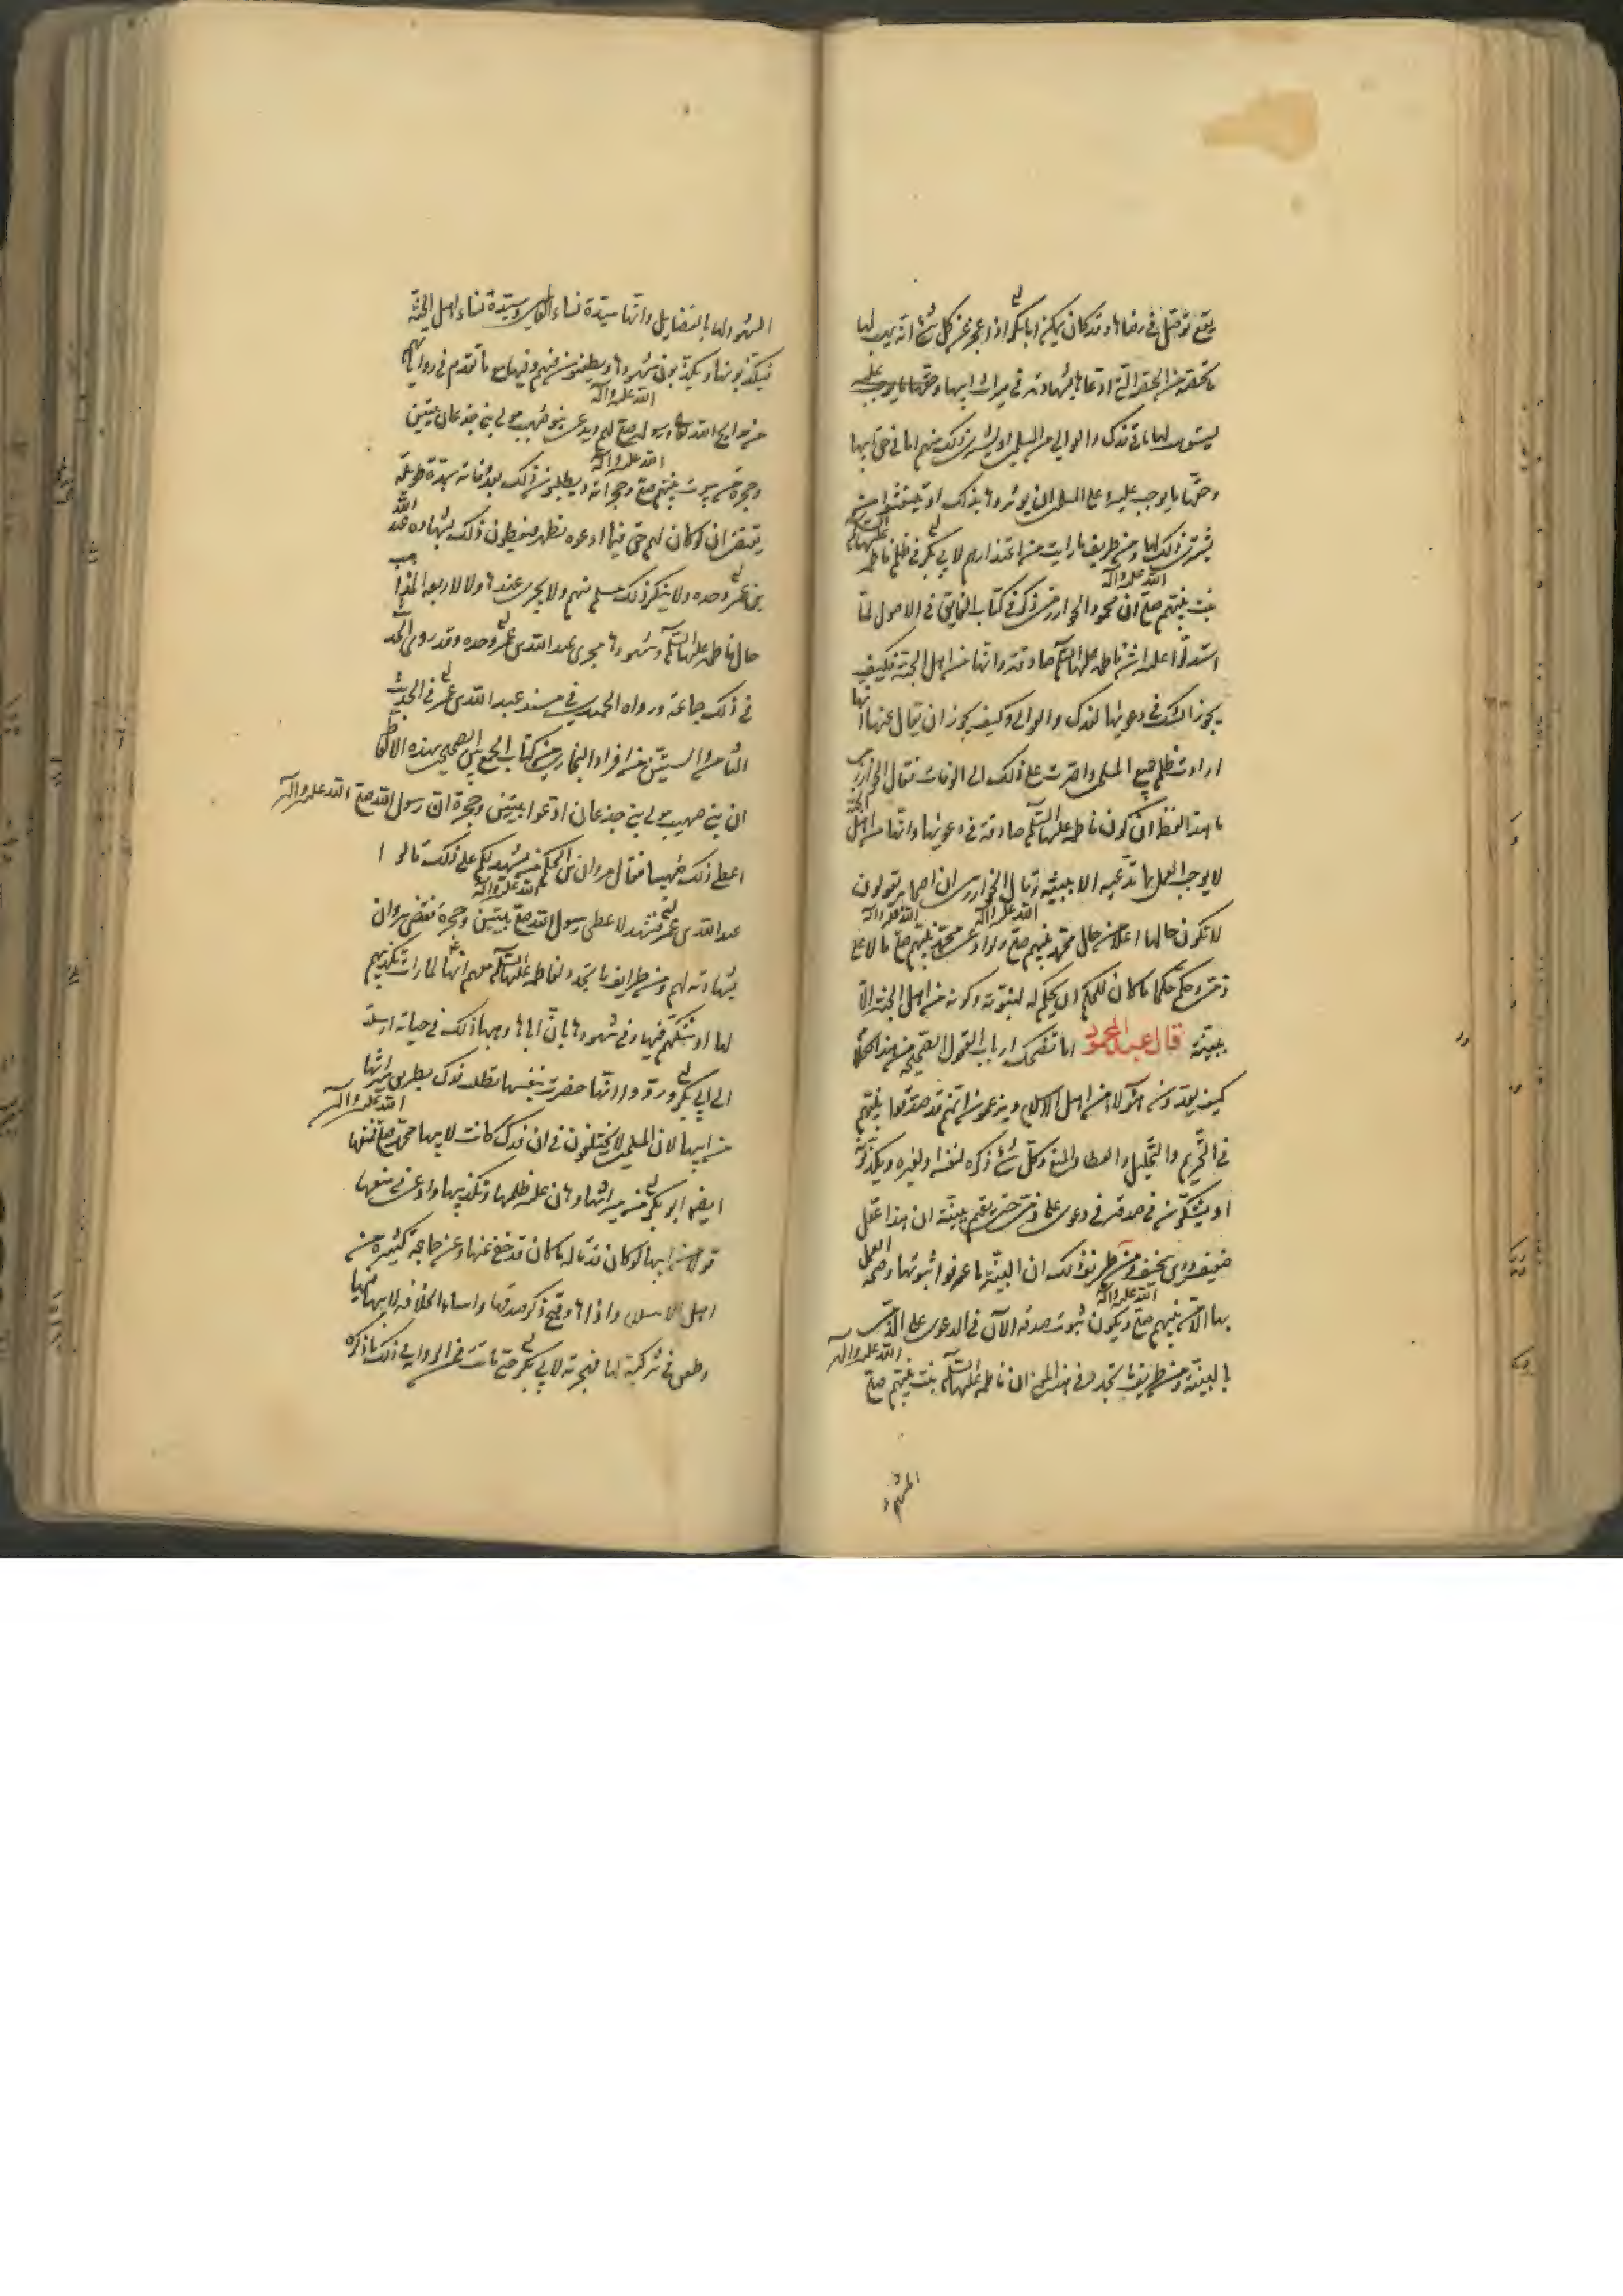 يقع توصل في رضاها وقد كان يمكن ابا بكر اذا عجز عن كل شئ انه يهب لها
ما يختصه من الحق التى ادعاها بشهادته في ميراث ابيها
ليستوهب لها باقى فدك والعوالي من المسلمين او يشترى ذلك منهم اما في حق ابيها
وحقها ما يوجب عليه وعلى المسلمين ان يوثروها بذلك او
يشترى ذلك لها ومن طريف ما رايت من اعتذارهم لابي بكر في ظلم فاطمه عليها السلم
بنت نبيهم صلى الله عليه وآله ان محمود الخوارزمى ذكر في كتاب الفايق في الاصول لما
استدلوا عليه بان فاطمه عليها السلم صادقة وانها من اهل الجنة فكيف
يجوز الشك في دعويها لفدك والعوالي وكيف يجوز ان يقال عنها انها
ارادت ظلم جميع المسلمين واصرت على ذلك الى الوفات فقال الخوارزمى
ما هذا لفظه ان كون فاطمه عليها السلم صادقة في دعويها وانها من اهل الجنة
لا يوجب العمل بما تدعيه الا ببينة وقال الخوارزمى ان اصحابه يقولون
لا تكون حالها اعلا من حال محمد نبيهم صلى الله عليه وآله ولو ادعى محمد نبيهم صلى الله عليه وآله مالا على
ذمى وحكم حكما ما كان للحكم ان يحكم له لنبوته وكونه من اهل الجنة الا
ببينة قال عبد المحمود اما تضحك ارباب العقول الصحيحة من هذا الكلام
كيف يعتدون هؤلاء من اهل الاسلام ويزعمون انهم قد صدقوا نبيهم
في التحريم والتحليل والعطا والمنع وكل شئ ذكره لنفسه او لغيره ويكذبونه
او يشكون في صدقه في دعوى على ذمى حتى يقيم بينة ان هذا عقل
ضعيف ودين سخيف ومن طريف ذلك ان البينة ما عرفوا ثبوتها وصحه العمل
بها الا من نبيهم صلى الله عليه وآله ويكون ثبوت صدقه الآن في الدعوى على الذمى
بالبينة ومن طريف ما تجدد في هذا المعنى ان فاطمه عليها السلم بنت نبيهم صلى الله عليه وآله
المشهود
المشهود لها بالفضايل وانها سيدة نساء العالمين وسيدة نساء اهل الجنة
فيكذبونها ويكذبون شهودها ويطعنون فيهم وفيها مع ما تقدم في رواياتهم
من مدايح الله تعالى ورسوله صلى الله عليه وآله لهم ويدعى بنو صهيب مولى بنى جذعان بيتين
وحجرة من بيوت نبيهم صلى الله عليه وآله وحجراته ويطلبون ذلك بعد وفاته بمدة طويلة
يقتضى ان لو كان لهم حق فيما ادعوه لظهر فيعطون ذلك بشهادة عبد الله
بن عمر وحده ولا ينكر ذلك مسلم منهم ولا يجرى عندها ولا الاربعه المذاهب
حال فاطمه عليها السلم وشهودها مجرى عبد الله بن عمر وحده وقد روى الحديث
في ذلك جماعة ورواه الحميدى في مسند عبد الله بن عمر في الحديث
الثامن والستين من افراد البخارى من كتاب الجمع بين الصحيحين بهذه الالفاظ
ان بنى صهيب مولى بنى جذعان ادعوا بيتين وحجرة ان رسول الله صلى الله عليه وآله
اعطى ذلك صهيبا فقال مروان بن الحكم من يشهد لكم على ذلك قالوا
عبد الله بن عمر فشهد لاعطى رسول الله صلى الله عليه وآله بيتين وحجرة فقضى مروان
بشهادته لهم ومن طرايف ما تجدد لفاطمه عليها السلم معهم انها لما رات تكذيبهم
لها او شكهم فيها وفي شهودها بان اباها وهبها ذلك في حياته ارسلت
الى ابي بكر وروا انها حضرت بنفسها تطلب فدك بطريق ميراثها
من ابيها لان المسلمين لا يختلفون في ان فدك كانت لابيها محمد صلى الله عليه وآله فمنعها
ايضا ابو بكر من ميراثها وهان عليه ظلمها وتكذيبها وادعى في منعها
قولا من ابيها لو كان قد قاله ما كان قد خفى عنها وعن جماعة كثيرة من
اهل الاسلام واذاها وقبح ذكر صدقها واساء الخلافه لابيها فيها
وطعن في تزكيته لها فهجرته لابي بكر حتى ماتت فمن الرواية في ذلك ما ذكره